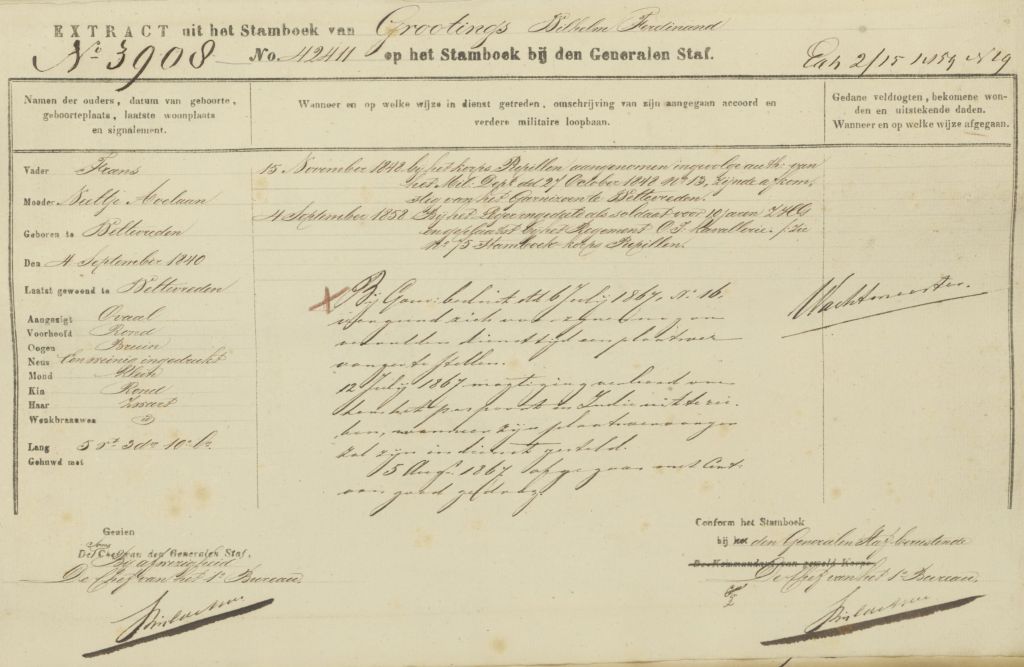 EXTRACT uit het Stamboek van Grootings Wilhelm Ferdinand
No 3908 No. 42411 op het Stamboek bij den Generalen Staf.
2/15 1159 N 19
Namen der ouders, datum van geboorte,
geboorteplaats, laatste woonplaats
en signalement.
Wanneer en op welke wijze in dienst getreden, omschrijving van zijn aangegaan accoord en
verdere militaire loopbaan.
Gedane veldtogten, bekomene won-
den en uitstekende daden.
Wanneer en op welke wijze afgegaan.
Vader Frans
Moeder Neeltje
Geboren te Weltevreden
Den 4 September 1840
Laatst gewoond te Weltevreden
Aangezigt Ovaal
Voorhoofd Rond
Oogen Bruin
Neus Een weinig ingedrukt
Mond Klein
Kin Rond
Haar Zwart
Wenkbraauwen id
Lang 5 vt 3 dm 10 l
Gehuwd met
15 November 1848 bij het korps Pupillen aangenomen ingevolge auth: van
het Mil. Dept dd 27 October 1848 No 13, zijnde afkom-
stig van het Garnizoen te Weltevreden.
4 September 1858 Bij het leger ingedeeld als soldaat voor 10 jaren Z.H.G.
en geplaatst bij het Regement O.I. Kavallerie. / Zie
No 75 Stamboek korps Pupillen.
X Bij Gouv: besluit dd 6 Julij 1867 No 16
vergund zich voor zijne nog on
vervulden diensttijd een plaatsver
vanger te stellen.
12 Julij 1867 magtiging verleend om
hem het paspoort in Indie uit te rei-
ken, wanneer zijn plaatsvervanger
zal zijn in dienst gesteld.
15 Aug. 1867 afgegaan met Cert.
van goed gedrag.
Wachtmeester.
Gezien
De Chef van den Generalen Staf,
Bij afwezigheid
De Chef van het 1e Bureau
Conform het Stamboek
bij het den Generalen Staf berustende
De Kommandant van gemeld Korps
De Chef van het 1e Bureau